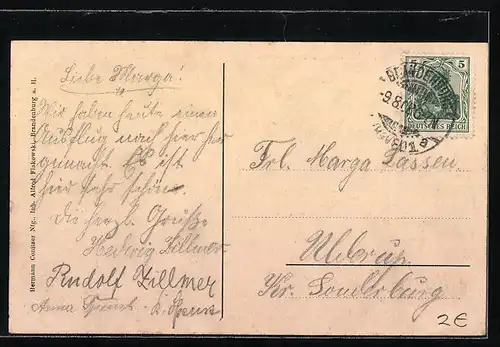 Liebe Marga!
Wir haben heute einen
Ausflug nach hier her
gemacht. Es ist
hier sehr schön.
Die herzl. Grüße
Hedwig Zillmer
Rudolf Zillmer
Anna
Hermann Contzer Nfg., Inh. Alfred Fiakowski, Brandenburg a. H.
BRANDENBURG
9.8.
5
DEUTSCHES REICH
Frl. Marga Lassen
Ulkerup
Kr. Sonderburg
2€